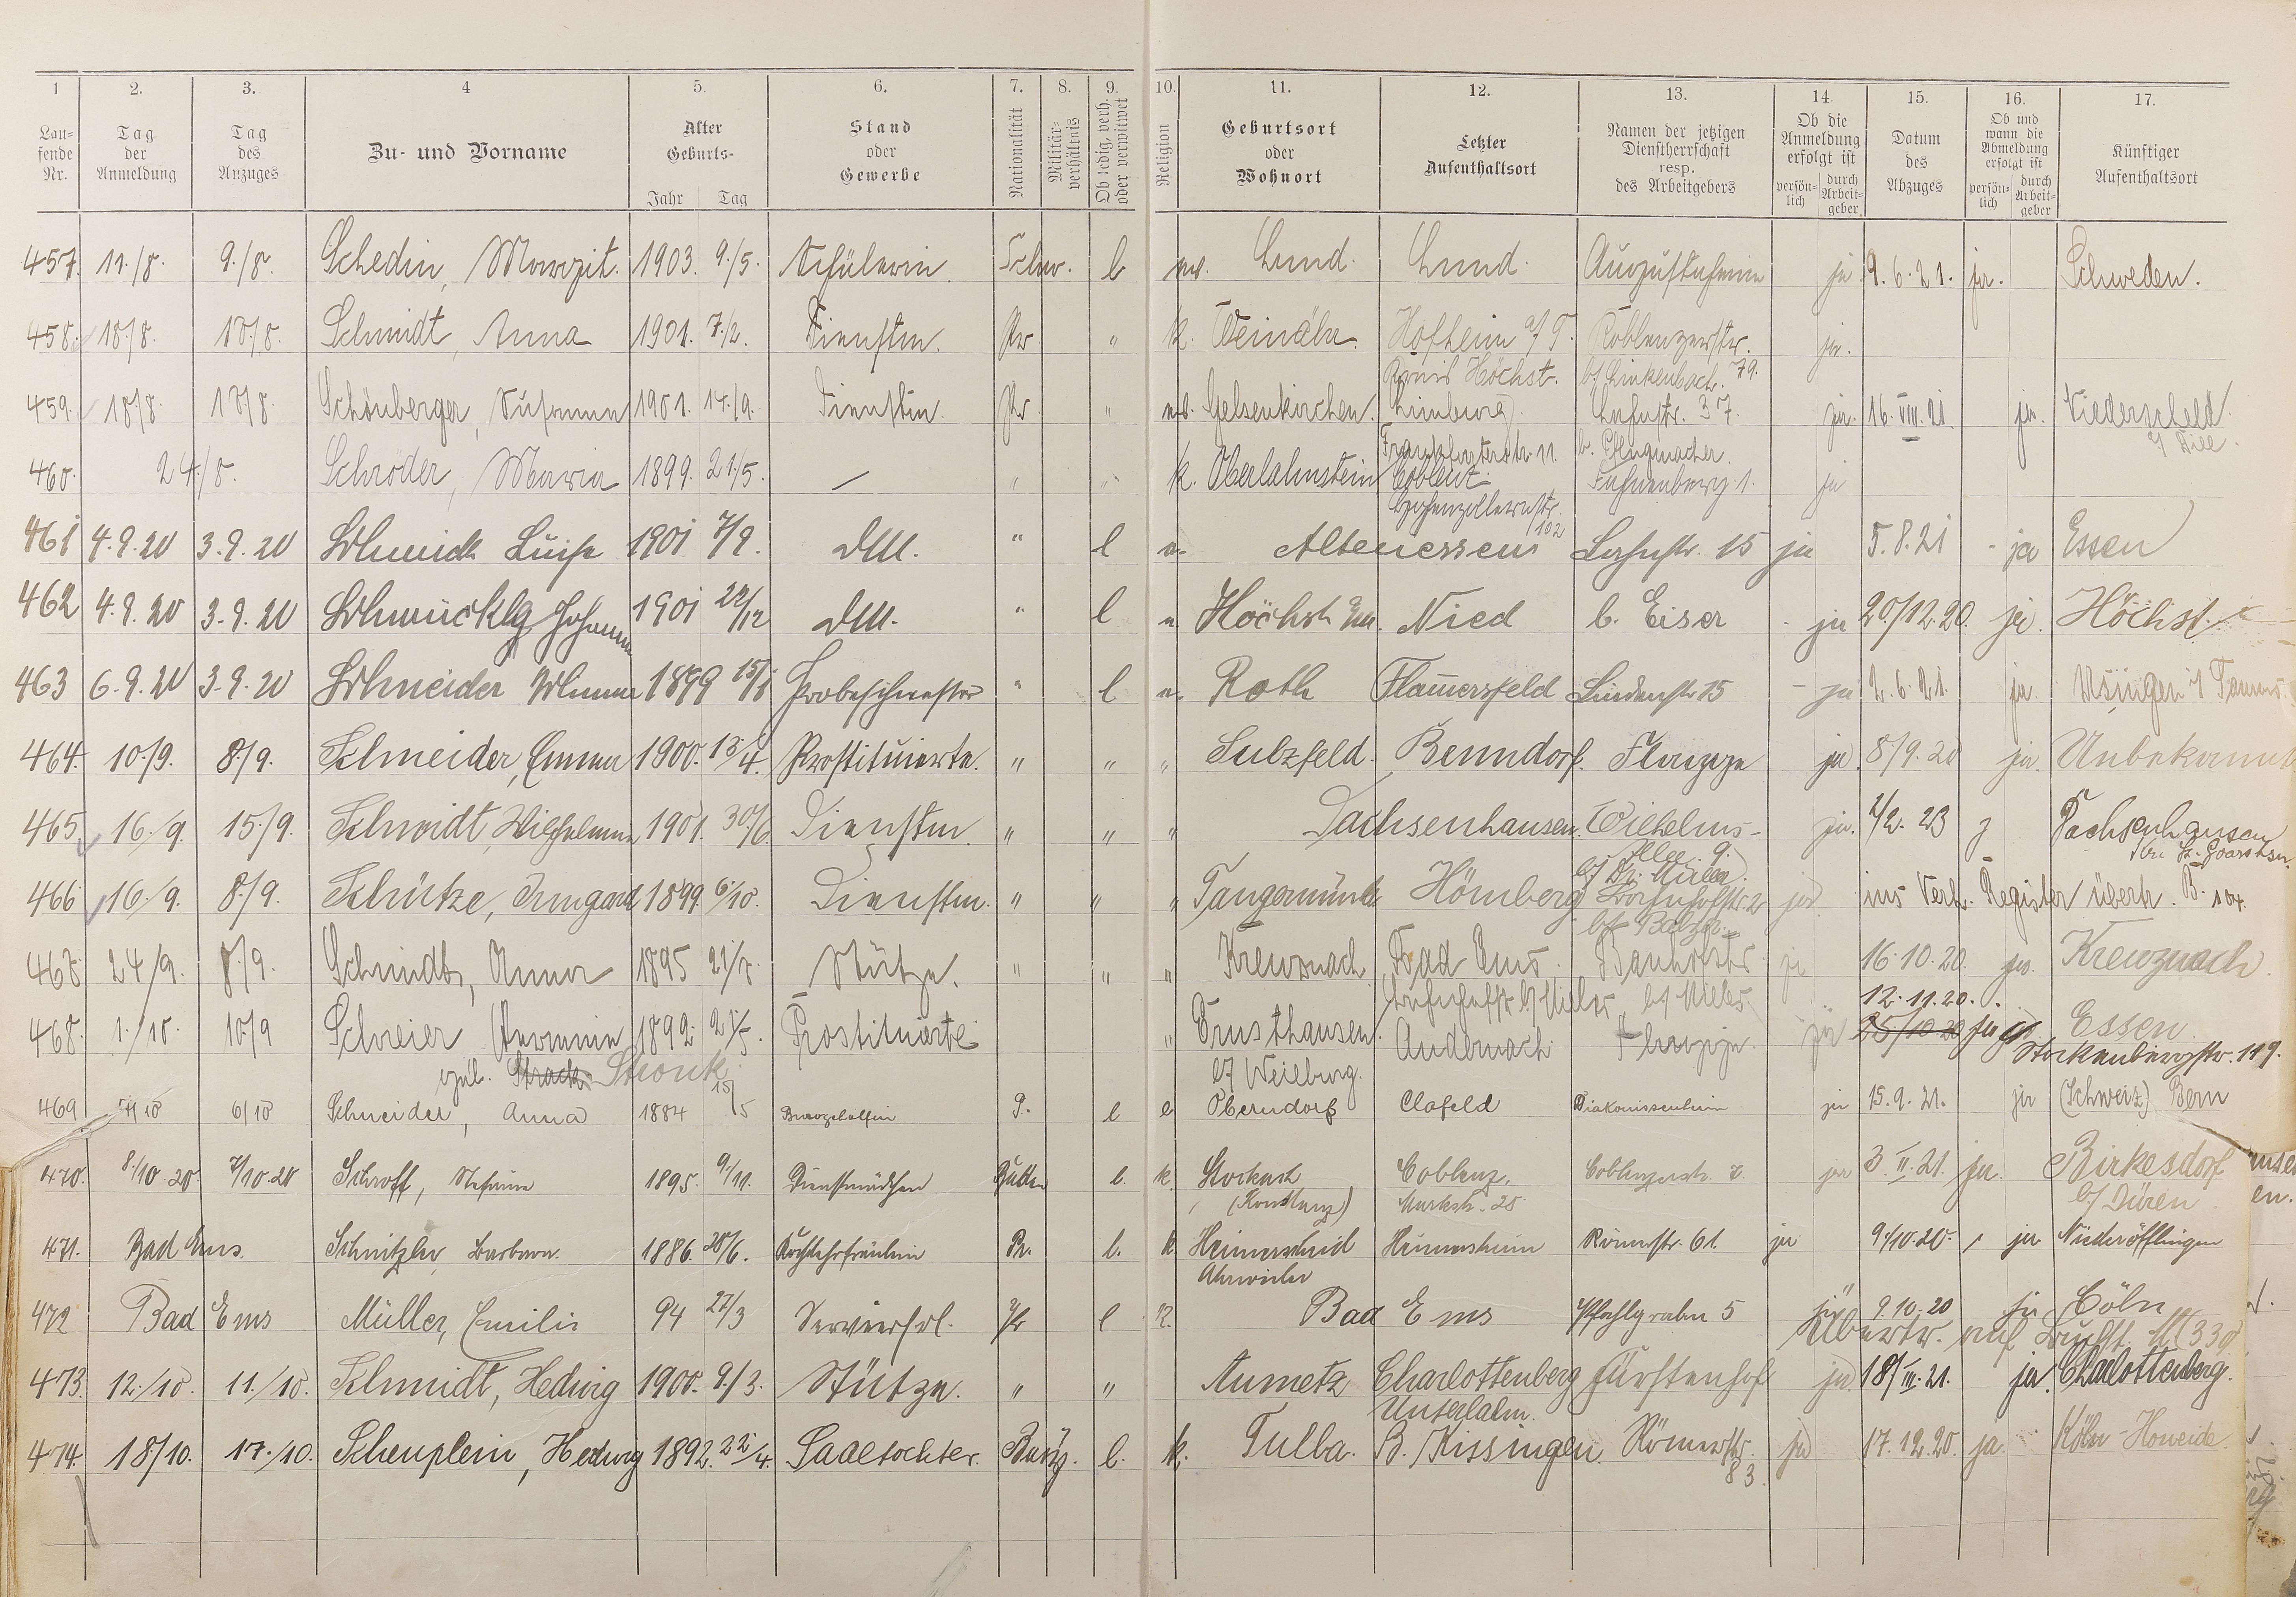 1 2. 3. 4 5. 6. 7. 8. 9. 10. 11. 12. 13. 14. 15. 16. 17.
Lau-
fende
Nr.
Tag
der
Anmeldung
Tag
des
Anzuges
Zu- und Vorname
Alter
Geburts-
Jahr Tag
Stand
oder
Gewerbe
Nationalität
Militär-
verhältnis
Ob ledig, verh.
oder verwitwet
Religion
Geburtsort
oder
Wohnort
Letzter
Aufenthaltsort
Namen der jetzigen
Dienstherrschaft
resp.
des Arbeitgebers
Ob die
Anmeldung
erfolgt ist
persön-
lich
durch
Arbeit-
geber
Datum
des
Abzuges
Ob und
wann die
Abmeldung
erfolgt ist
persön-
lich
durch
Arbeit-
geber
Künftiger
Aufenthaltsort
457. 11./8. 9./8. Schedin, Margit. 1903. 9./5. Schülerin. Schw. l ev. Lund. Lund. Augustaheim ja 9.6.21. ja. Schweden.
458. 18./8. 18/8. Schmidt, Anna 1901. 7./2. Dienstm. Pr " k. Weinähr. Hofheim a/T. Koblenzerstr. ja.
Kreis Höchst. b/ Linkenbach. 79.
459. 18/8. 18/8. Schönberger, Susanna 1901. 14./9. Dienstm. Pr " ev. Gelsenkirchen. Limburg Lahnstr. 37. ja. 16.VIII.21. ja. Niederscheld
Frankfurterstr. 11. b. Pflugmacher. a/ Dill.
460. 24./8. Schröder, Maria 1899. 21./5. — " " k. Oberlahnstein Coblenz ja
Hohenzollernstr.
102
461 4.9.20 3.9.20 Luise 1901 7/9. DM. " l e. Altenessen Lahnstr. 15 ja 5.8.21 - ja Essen
462 4.9.20 3.9.20 Johanna 1901 22/12 DM. " l e. Höchst a/M. Nied b. Eiser - ja 20/12.20. ja. Höchst.
463 6.9.20 3.9.20 Schneider 1899 15/1 Probeschwester " l e. Roth Flammersfeld Lindenstr 15 - ja 2.6.21. ja. Usingen i/ Taunus.
464. 10./9. 8/9. Schneider, Emma 1900. 18/4. Prostituierte. " " " Sulzfeld. Benndorf. Flougge ja 8/9.20 ja. Unbekannt
465. 16./9. 15./9. Schmidt, Wilhelmine 1901. 30/6. Dienstm. " " " Sachsenhausen. Wilhelms- ja. 1/2. 23 j Sachsenhausen
Allee. 9. bei St. Goarshsn.
466. 16./9. 8/9. Schütze, Irmgard 1899. 6/10. Dienstm. " " " Tangermünde Hömberg Bahnhofstr. 2 ja ins Verh. Register übertr. B. 104.
b/ Balzer.
468. 24/9. 8./9. Schmidt, Anna 1895 21/8. Stütze. " " " Kreuznach Bad Ems Banhofstr ja 16.10.20. ja. Kreuznach.
12.11.20.
468. 1./10. 10/9 Schreier Hermine 1892. 21/5. Prostituierte " Ernsthausen. Andernach ja 25/10 20 ja Essen.
geb. Strack Stronk. b/ Weilburg. Stockenbergstr. 119.
469 7/10 6/10 Schneider, Anna 1884 15/5 Bürogehilfin P. l e Oberndorf Clafeld Diakonissenheim ja 15.9.21. ja (Schweiz) Bern
470. 8./10.20. 7/10.20 Schroff, Stefanie 1895. 9/11. Dienstmädchen Baden l. k. Stockach Coblenz. Coblenzerstr. 2. ja 3.II.21. ja. Birkesdorf
(Konstanz) Markstr. 25 b/ Düren
471. Bad Ems Schnitzler, Barbara. 1886. 28/6. Kochlehrfräulein Pr. l. k Heimersheim Römerstr. 61. ja 9/10.20. ja Niederöfflingen
Ahrweiler
472 Bad Ems Müller, Emilie 94 27/3 Servierfrl. Pr l k. Bad Ems Pfahlgraben 5 ja 9.10.20 ja Cöln
Übertr. auf Buchst. M (330)
473. 12./10. 11./10. Schmidt, Hedwig 1900. 9./3. Stütze. " " Aumetz Charlottenberg Fürstenhof ja 18/III.21. ja. Charlottenberg.
Unterlahn.
474. 18/10. 17./10. Scheuplein, Hedwig 1892. 22/4. Saaltochter. Bayr. l. k. Tulba. B. Kissingen. Römerstr. ja 17.12.20. ja. Köln-Höweide.
83.